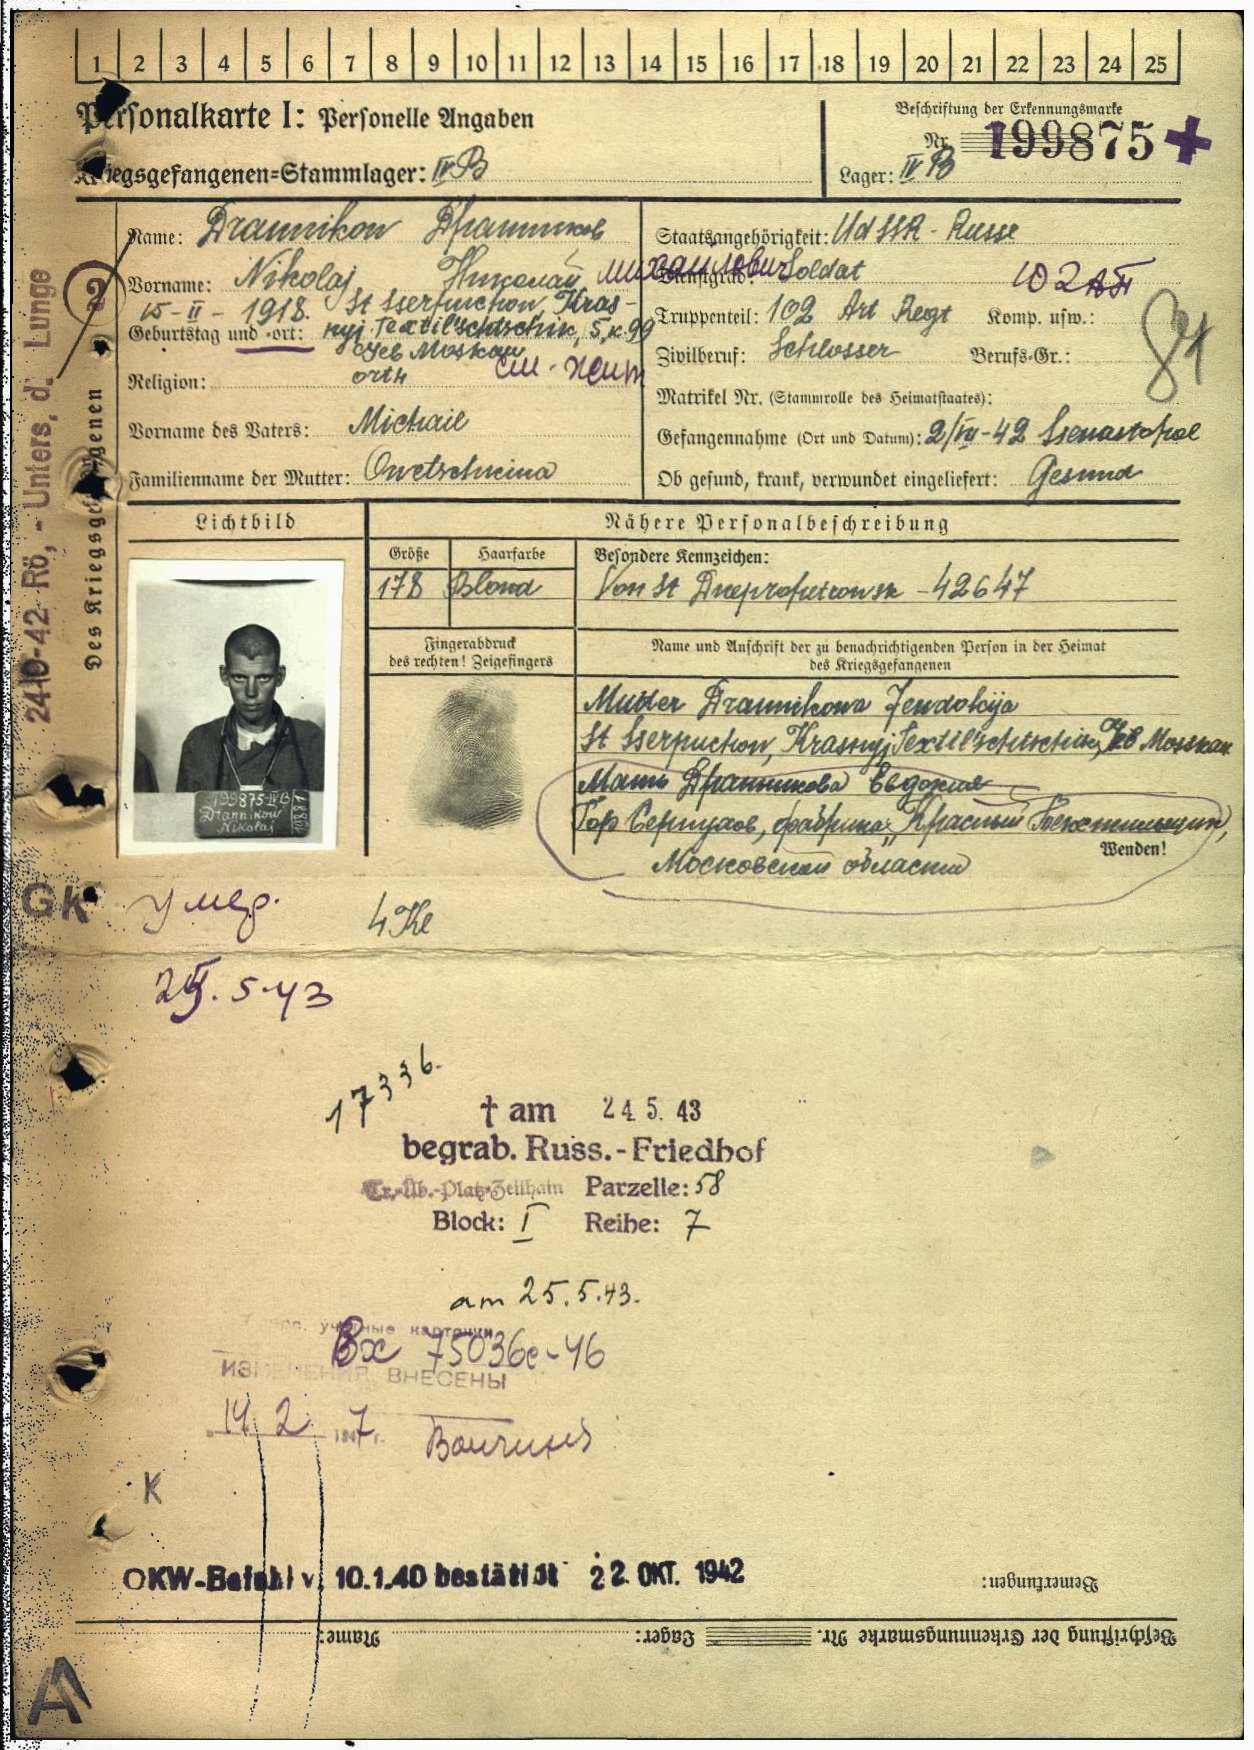 1 2 3 4 5 6 7 8 9 10 11 12 13 14 15 16 17 18 19 20 21 22 23 24 25
Personalkarte I: Personelle Angaben
Beschriftung der Erkennungsmarke
Nr. 199875
Kriegsgefangenen=Stammlager: IV B
Lager: IV B
Des Kriegsgefangenen
24-10-42 Rö,- Unters. d. Lunge
2
Name: Drannikow Дранников
Vorname: Nikolaj Николай Михайлович
15-II-1918. St Sserpuchow, Kras-
Geburtstag und -ort: nyj Textil'schtschik, 5, к 99
Geb Moskau
Religion: orth
Vorname des Vaters: Michail
Familienname der Mutter: Owetschkina
Staatsangehörigkeit: UdSSR - Russe
Dienstgrad: Soldat
102 АП
Truppenteil: 102 Art Regt Komp. usw.:
Zivilberuf: Schlosser Berufs-Gr.:
81
Matrikel Nr. (Stammrolle des Heimatstaates):
Gefangennahme (Ort und Datum): 2/VII-42 Ssewastopol
Ob gesund, krank, verwundet eingeliefert: Gesund
Lichtbild
Nähere Personalbeschreibung
Größe Haarfarbe Besondere Kennzeichen:
178 Blond Von St Dnepropetrowsk - 42647
Fingerabdruck
des rechten! Zeigefingers
Name und Anschrift der zu benachrichtigenden Person in der Heimat
des Kriegsgefangenen
Mutter Drannikowa Jewdokija
St Sserpuchow, Krasnyj Textil'schtschik, Geb Moskau
Мать Дранникова Евдокия
Гор Серпухов, фабрика „Красный Текстильщик",
Wenden!
Московской области
199875-IV B
Drannikow
Nikolaj
GK
умер.
4 Kl
25.5.43
17336.
† am 24.5.43
begrab. Russ.-Friedhof
Tr.-Üb.-Platz-Zeithain Parzelle: 58
Block: I Reihe: 7
am 25.5.43.
учетные карточки
Вх 75036с-46
ИЗМЕНЕНИЯ ВНЕСЕНЫ
14 2 1947 г.
K
OKW-Befehl v. 10.1.40 bestätigt 22. OKT. 1942
Bemerkungen:
Beschriftung der Erkennungsmarke Nr. Lager: Name:
A